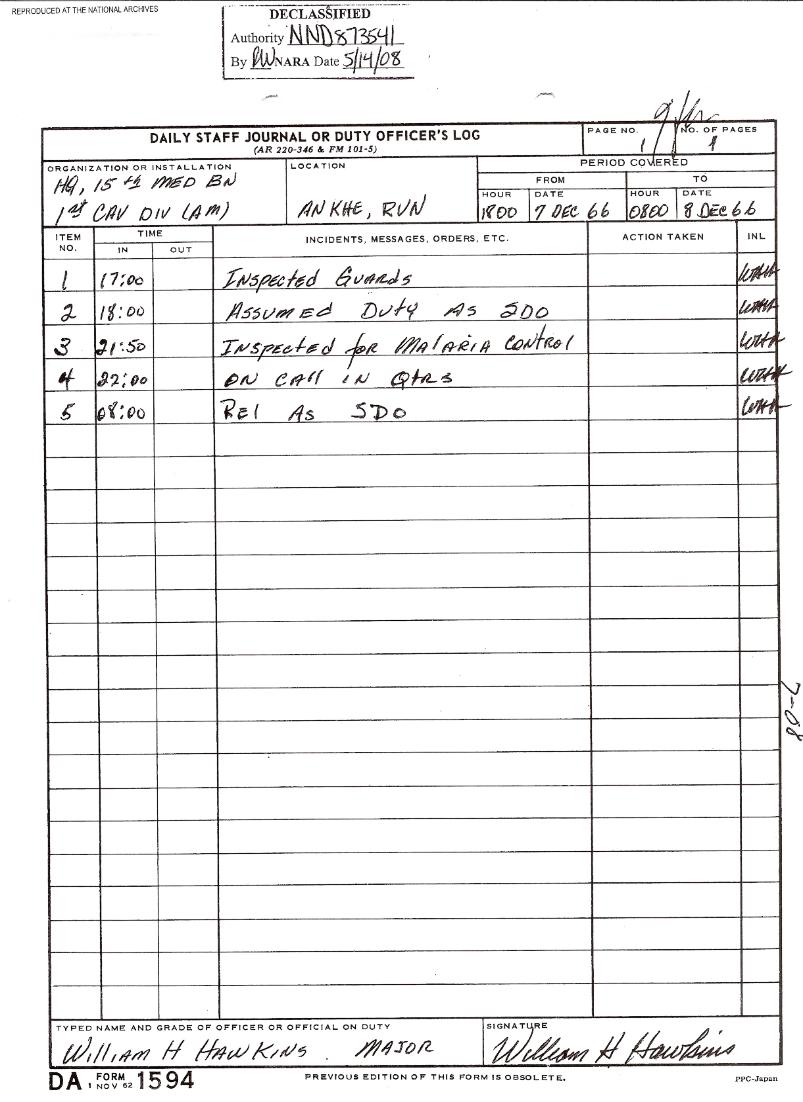 REPRODUCED AT THE NATIONAL ARCHIVES
DECLASSIFIED
Authority NND873541
By NARA Date 5/14/08
DAILY STAFF JOURNAL OR DUTY OFFICER'S LOG
(AR 220-346 & FM 101-5)
PAGE NO. 1
NO. OF PAGES 1
ORGANIZATION OR INSTALLATION
HQ, 15th MED BN
1st CAV DIV (AM)
LOCATION
AN KHE, RVN
PERIOD COVERED
FROM TO
HOUR DATE HOUR DATE
1800 7 DEC 66 0800 8 DEC 66
ITEM NO. TIME IN OUT INCIDENTS, MESSAGES, ORDERS, ETC. ACTION TAKEN INL
1 17:00 Inspected Guards WHH
2 18:00 Assumed Duty As SDO WHH
3 21:50 Inspected for Malaria Control WHH
4 22:00 On Call in Qtrs WHH
5 08:00 Rel As SDO WHH
7-08
TYPED NAME AND GRADE OF OFFICER OR OFFICIAL ON DUTY
William H Hawkins. Major
SIGNATURE
William H Hawkins
DA FORM 1 NOV 62 1594
PREVIOUS EDITION OF THIS FORM IS OBSOLETE.
PPC-Japan